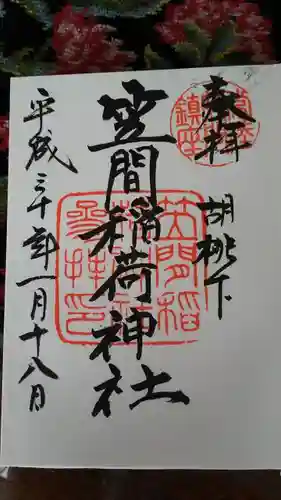 奉拝
胡桃下
笠間稲荷神社
平成三十年一月十八日